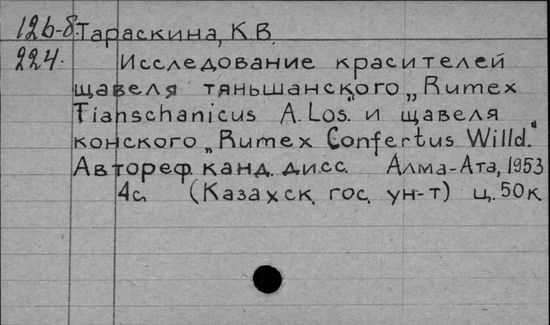 126-8 Тараскина, К.В.
224. Исследование красителей
щавеля тяньшанского „Rumex
Tianschanicus A. Los." и щавеля
конского „Rumex Confertus Willd."
Автореф. канд. дисс. Алма-Ата, 1953
4с. (Казахск. гос. ун-т) ц. 50к